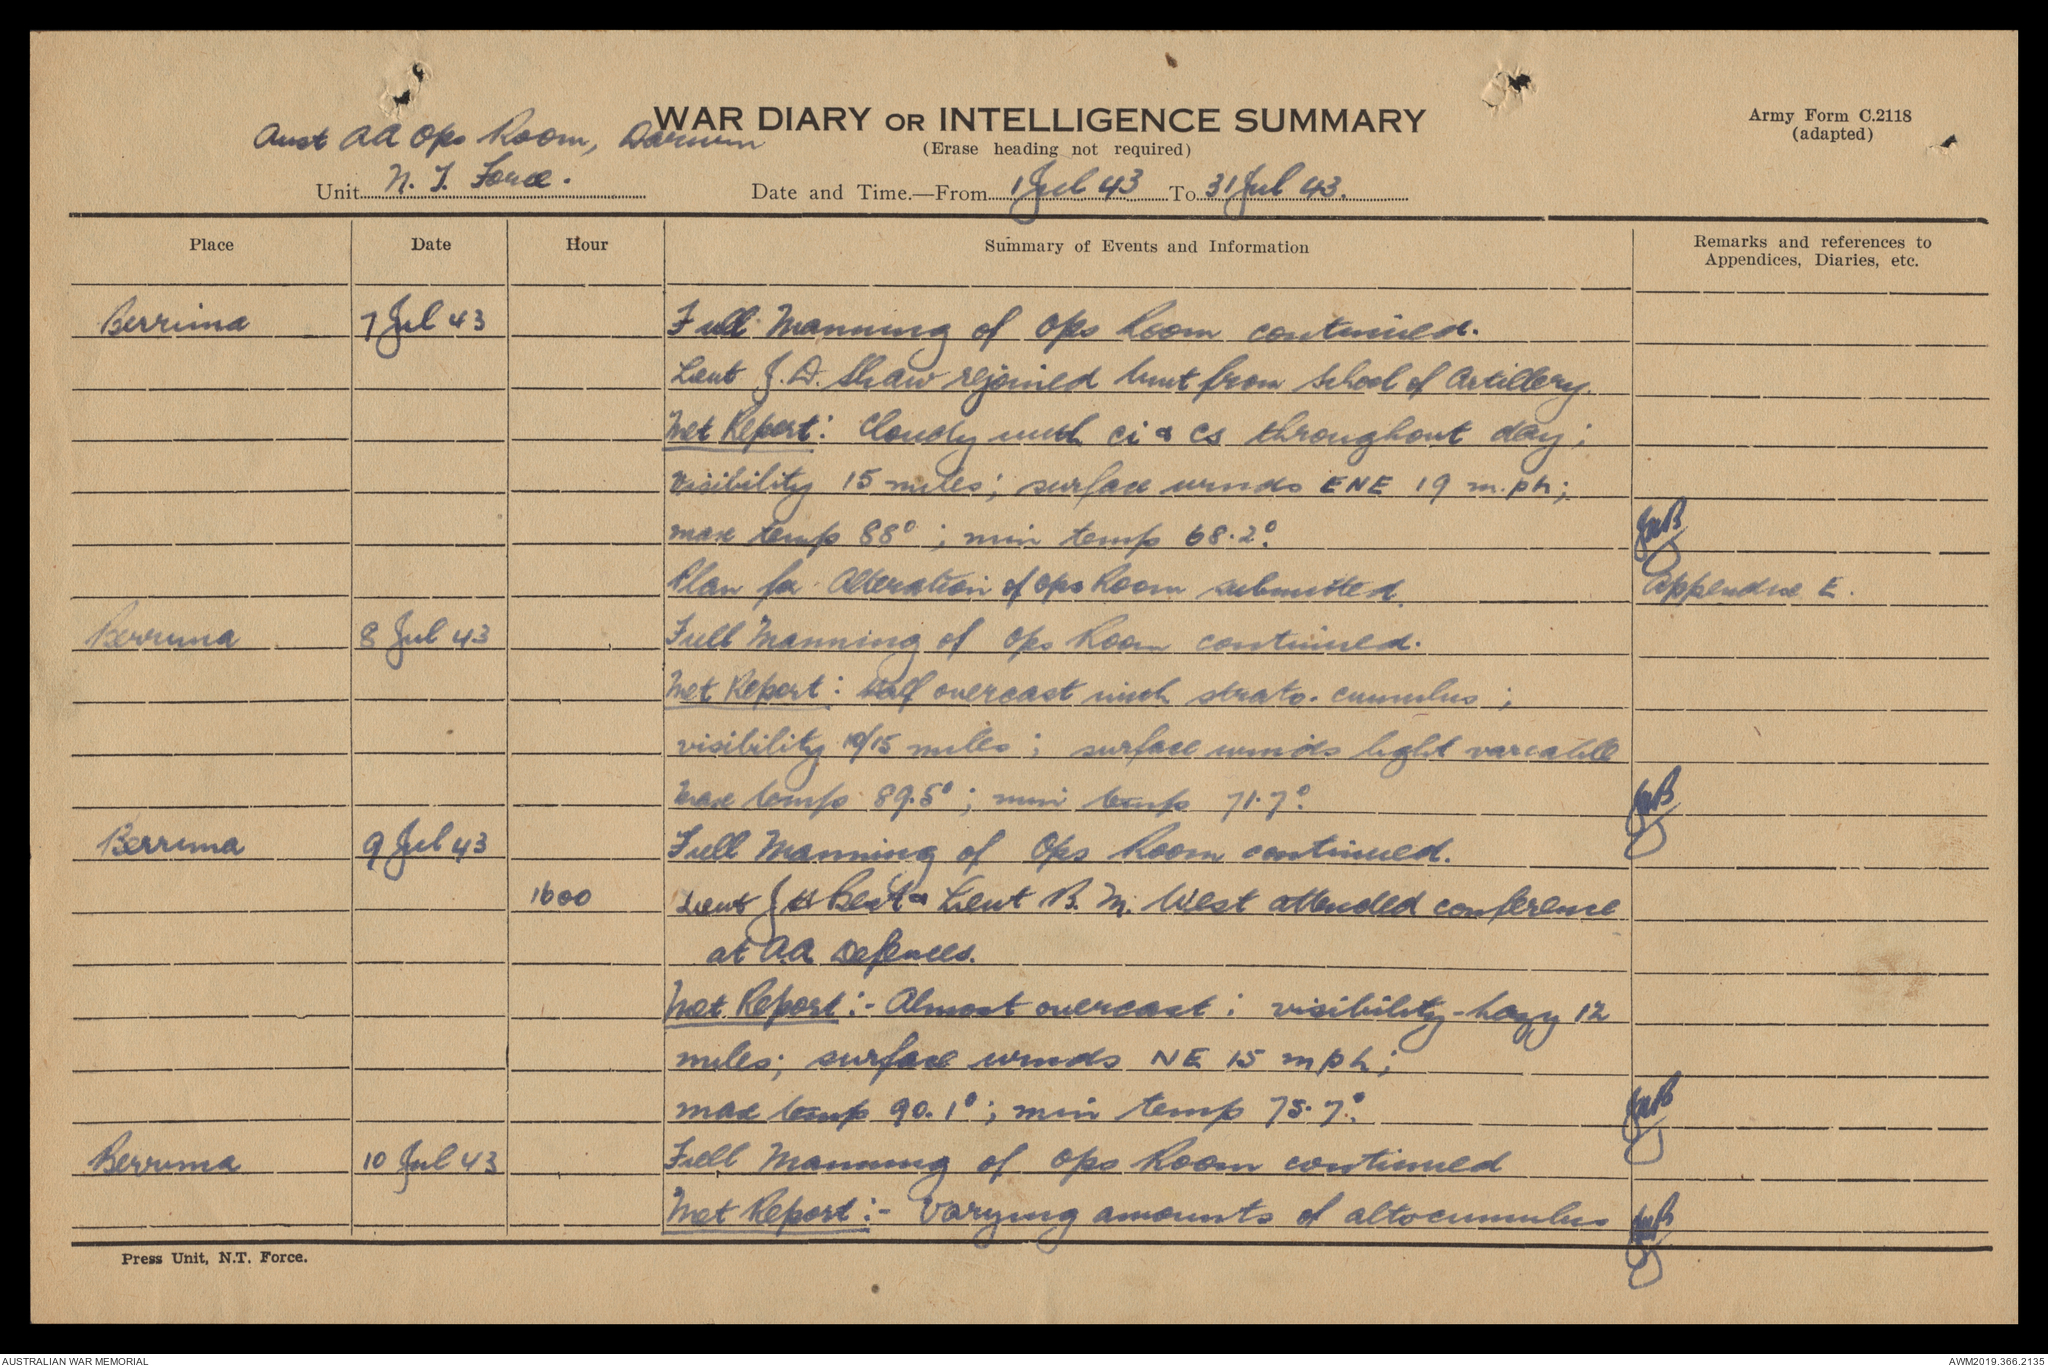 WAR DIARY OR INTELLIGENCE SUMMARY
(Erase heading not required)
Army Form C.2118
(adapted)
Aust AA Ops Room, Darwin
Unit N. T. Force.
Date and Time.—From 1 Jul 43 To 31 Jul 43.
Place Date Hour Summary of Events and Information Remarks and references to
Appendices, Diaries, etc.
Berrima 7 Jul 43 Full Manning of Ops Room continued.
Lieut J. D. Shaw rejoined unit from School of Artillery.
Met Report: Cloudy with ci & cs throughout day;
visibility 15 miles; surface winds ENE 19 m.ph;
max temp 88°; min temp 68.2°.
Plan for Alteration of Ops Room submitted. Appendix E.
Berrima 8 Jul 43 Full Manning of Ops Room continued.
Met Report: Half overcast with strato-cumulus;
visibility 10/15 miles; surface winds light variable
Max temp 89.5°; min temp 71.7°.
Berrima 9 Jul 43 Full Manning of Ops Room continued.
1600 Lieut J H Best & Lieut B. M. West attended conference
at A.A. Defences.
Met Report:- Almost overcast: visibility-hazy 12
miles; surface winds NE 15 mph;
max temp 90.1°; min temp 75.7°.
Berrima 10 Jul 43 Full Manning of Ops Room continued
Met Report:- Varying amounts of altocumulus
Press Unit, N.T. Force.
AUSTRALIAN WAR MEMORIAL
AWM2019.366.2135